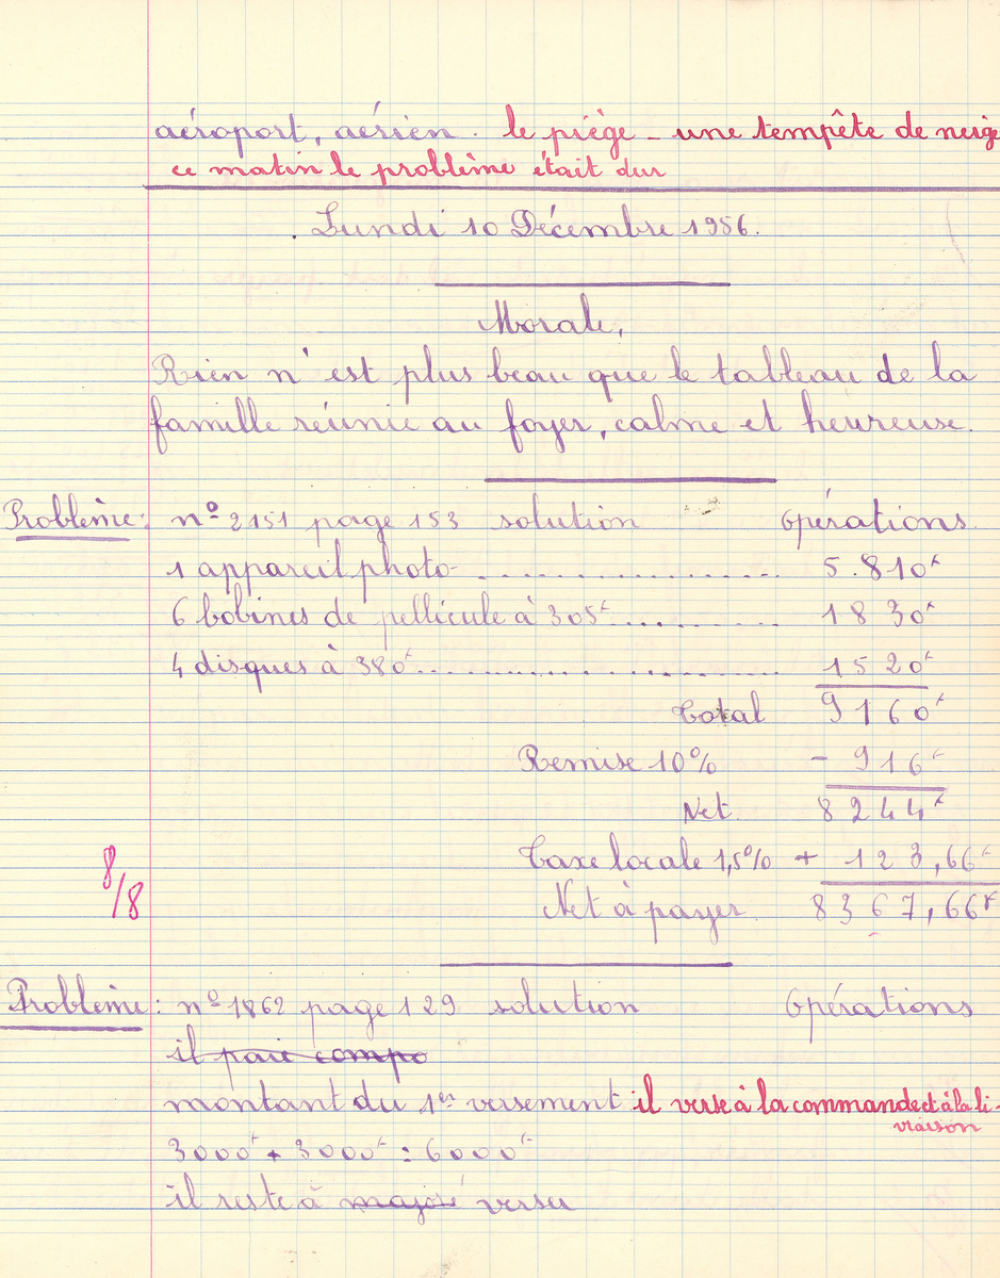 aéroport, aérien. le piège - une tempête de neige
ce matin le problème était dur
Lundi 10 Décembre 1956.
Morale,
Rien n'est plus beau que le tableau de la
famille réunie au foyer, calme et heureuse.
Problème: n° 2151 page 153 solution opérations
1 appareil photo- .................... 5.810F
6 bobines de pellicule à 305F........... 1830F
4 disques à 380F....................... 1520F
Total 9160F
Remise 10% - 916F
Net. 8244F
Taxe locale 1,5% + 123,66F
8/8
Net à payer. 8367,66F
Problème: n° 1862 page 129 solution opérations
il paie compo
montant du 1er versement il verse à la commande et à la li-
vraison
3000F + 3000F = 6000F
il reste à majoré verser